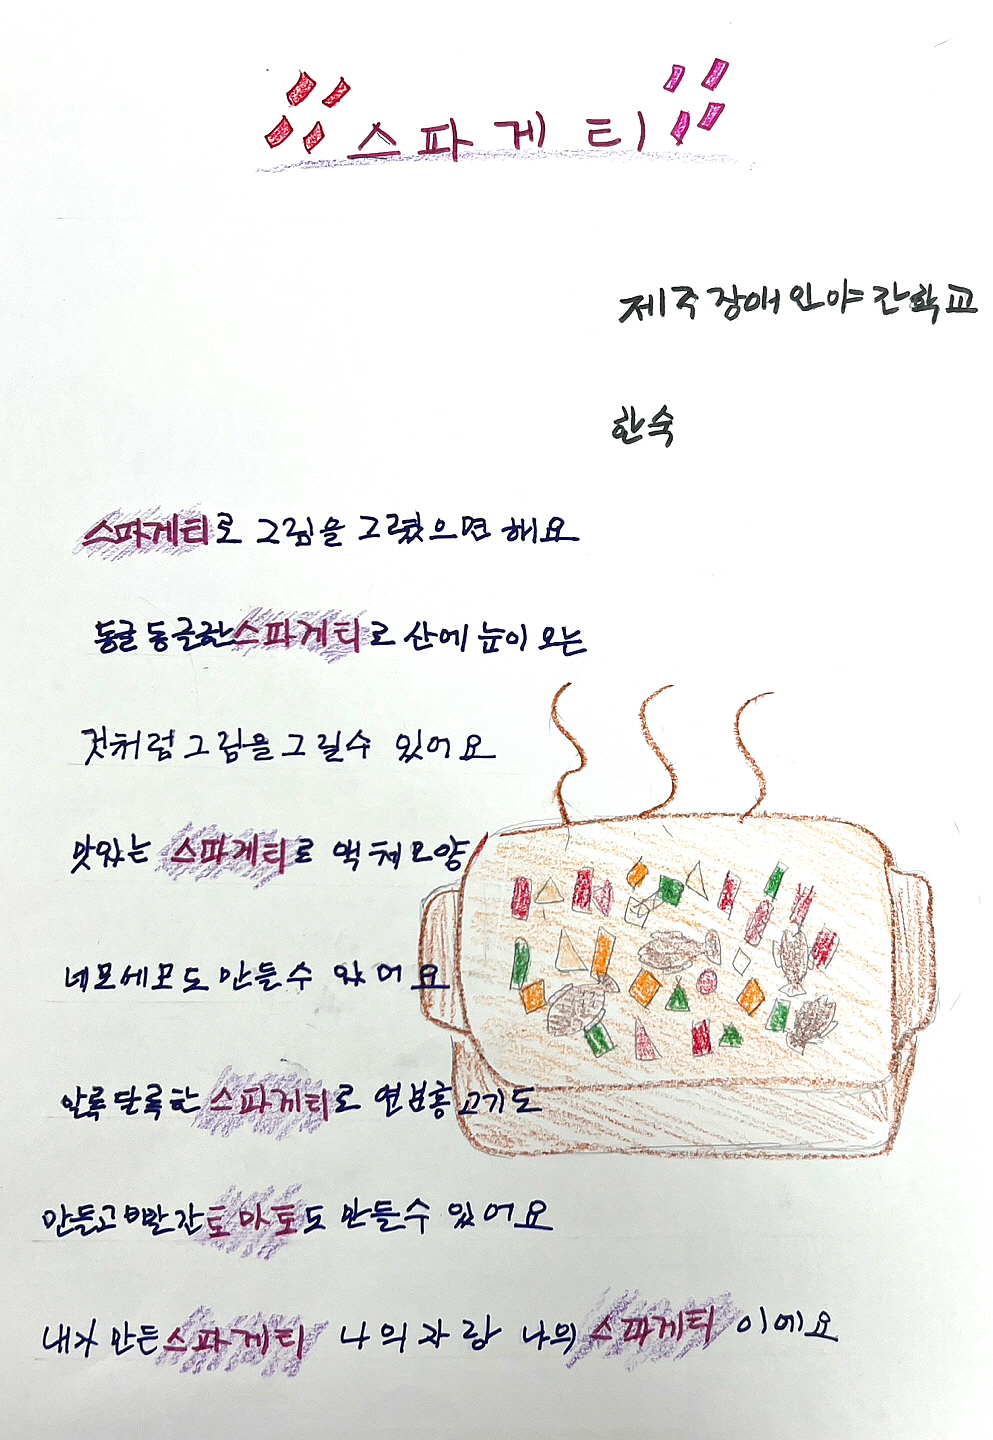 스파게티
제주장애인야간학교
한숙
스파게티로 그림을 그렸으면 해요
동글동글한스파게티로 산에 눈이 오는
것처럼 그림을 그릴수 있어요
맛있는 스파게티로 액체모양
네모세모도 만들수 있어요
알록달록한 스파게티로 연분홍고기도
만들고빨간토마토도 만들수 있어요
내가 만든스파게티 나의자랑 나의 스파게티 이에요